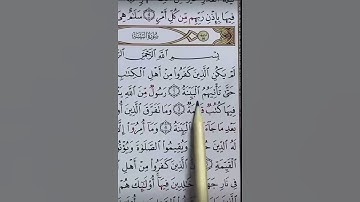 فِيهَا بِإِذْنِ رَبِّهِم مِّن كُلِّ أَمْرٍ ۝ سَلَـٰمٌ هِيَ
سُورَةُ البَيِّنَة
بِسْمِ اللَّهِ الرَّحْمَـٰنِ
لَمْ يَكُنِ الَّذِينَ كَفَرُوا مِنْ أَهْلِ الْكِتَـٰبِ
حَتَّىٰ تَأْتِيَهُمُ الْبَيِّنَةُ ۝ رَسُولٌ مِّنَ اللَّهِ
فِيهَا كُتُبٌ قَيِّمَةٌ ۝ وَمَا تَفَرَّقَ الَّذِينَ
بَعْدِ مَا جَاءَ الْبَيِّنَةُ ۝ وَمَا أُمِرُوا
لَهُ الدِّينَ وَيُقِيمُوا الصَّلَوٰةَ
الْقَيِّمَةِ ۝ الَّذِينَ كَفَرُوا مِنْ أَهْلِ
فِي نَارِ خَـٰلِدِينَ فِيهَا أُولَـٰئِكَ هُمْ